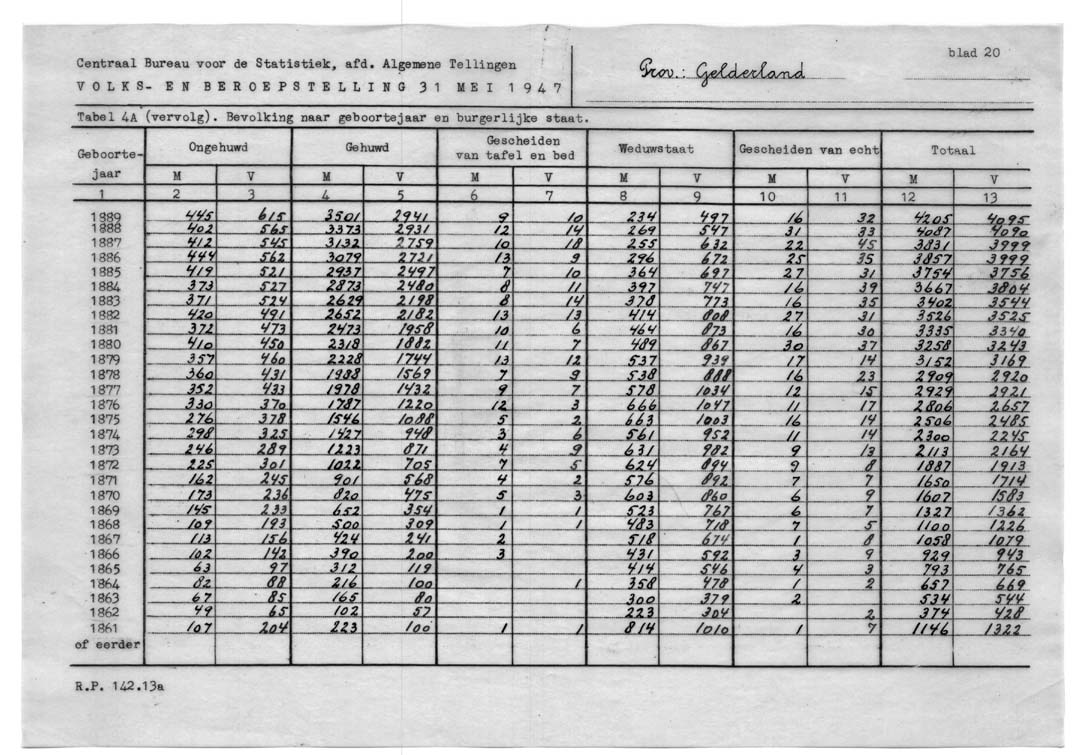 blad 20
Centraal Bureau voor de Statistiek, afd. Algemene Tellingen
Prov.: Gelderland
VOLKS- EN BEROEPSTELLING 31 MEI 1947
Tabel 4A (vervolg). Bevolking naar geboortejaar en burgerlijke staat.
Geboorte-jaar Ongehuwd Gehuwd Gescheiden van tafel en bed Weduwstaat Gescheiden van echt Totaal
M V M V M V M V M V M V
1 2 3 4 5 6 7 8 9 10 11 12 13
1889 445 615 3501 2941 9 10 234 497 16 32 4205 4095
1888 402 565 3373 2931 12 14 269 547 31 33 4087 4090
1887 412 545 3132 2759 10 18 255 632 22 45 3831 3999
1886 444 562 3079 2721 13 9 296 672 25 35 3857 3999
1885 419 521 2937 2497 7 10 364 697 27 31 3754 3756
1884 373 527 2873 2480 8 11 397 747 16 39 3667 3804
1883 371 524 2629 2198 8 14 378 773 16 35 3402 3544
1882 420 491 2652 2182 13 13 414 808 27 31 3526 3525
1881 372 473 2473 1958 10 6 464 873 16 30 3335 3340
1880 410 450 2318 1882 11 7 489 867 30 37 3258 3243
1879 357 460 2228 1744 13 12 537 939 17 14 3152 3169
1878 360 431 1988 1569 7 9 538 888 16 23 2909 2920
1877 352 433 1978 1432 9 7 578 1034 12 15 2929 2921
1876 330 370 1787 1220 12 3 666 1047 11 17 2806 2657
1875 276 378 1546 1088 5 2 663 1003 16 14 2506 2485
1874 298 325 1427 948 3 6 561 952 11 14 2300 2245
1873 246 289 1223 871 4 9 631 982 9 13 2113 2164
1872 225 301 1022 705 7 5 624 894 9 8 1887 1913
1871 162 245 901 568 4 2 576 892 7 7 1650 1714
1870 173 236 820 475 5 3 603 860 6 9 1607 1583
1869 145 233 652 354 1 1 523 767 6 7 1327 1362
1868 109 193 500 309 1 1 483 718 7 5 1100 1226
1867 113 156 424 241 2 518 674 1 8 1058 1079
1866 102 142 390 200 3 431 592 3 9 929 943
1865 63 97 312 119 414 546 4 3 793 765
1864 82 88 216 100 1 358 478 1 2 657 669
1863 67 85 165 80 300 379 2 534 544
1862 49 65 102 57 223 304 2 374 428
1861 107 204 223 100 1 1 814 1010 1 7 1146 1322
of eerder
R.P. 142.13a